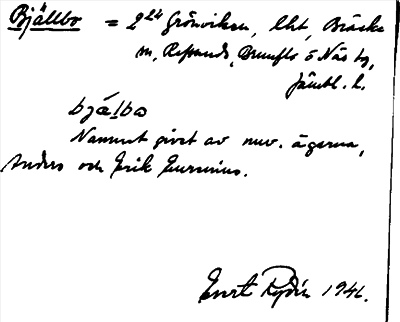 Bjällbo = 2 24 Grönviken, lht, Bräcke
m, Refsunds, Brunflo o Näs tg,
Jämtl. l.
bjälbo
Namnet givet av nuv. ägarna,
Anders och Erik
Curt Rydin 1941.